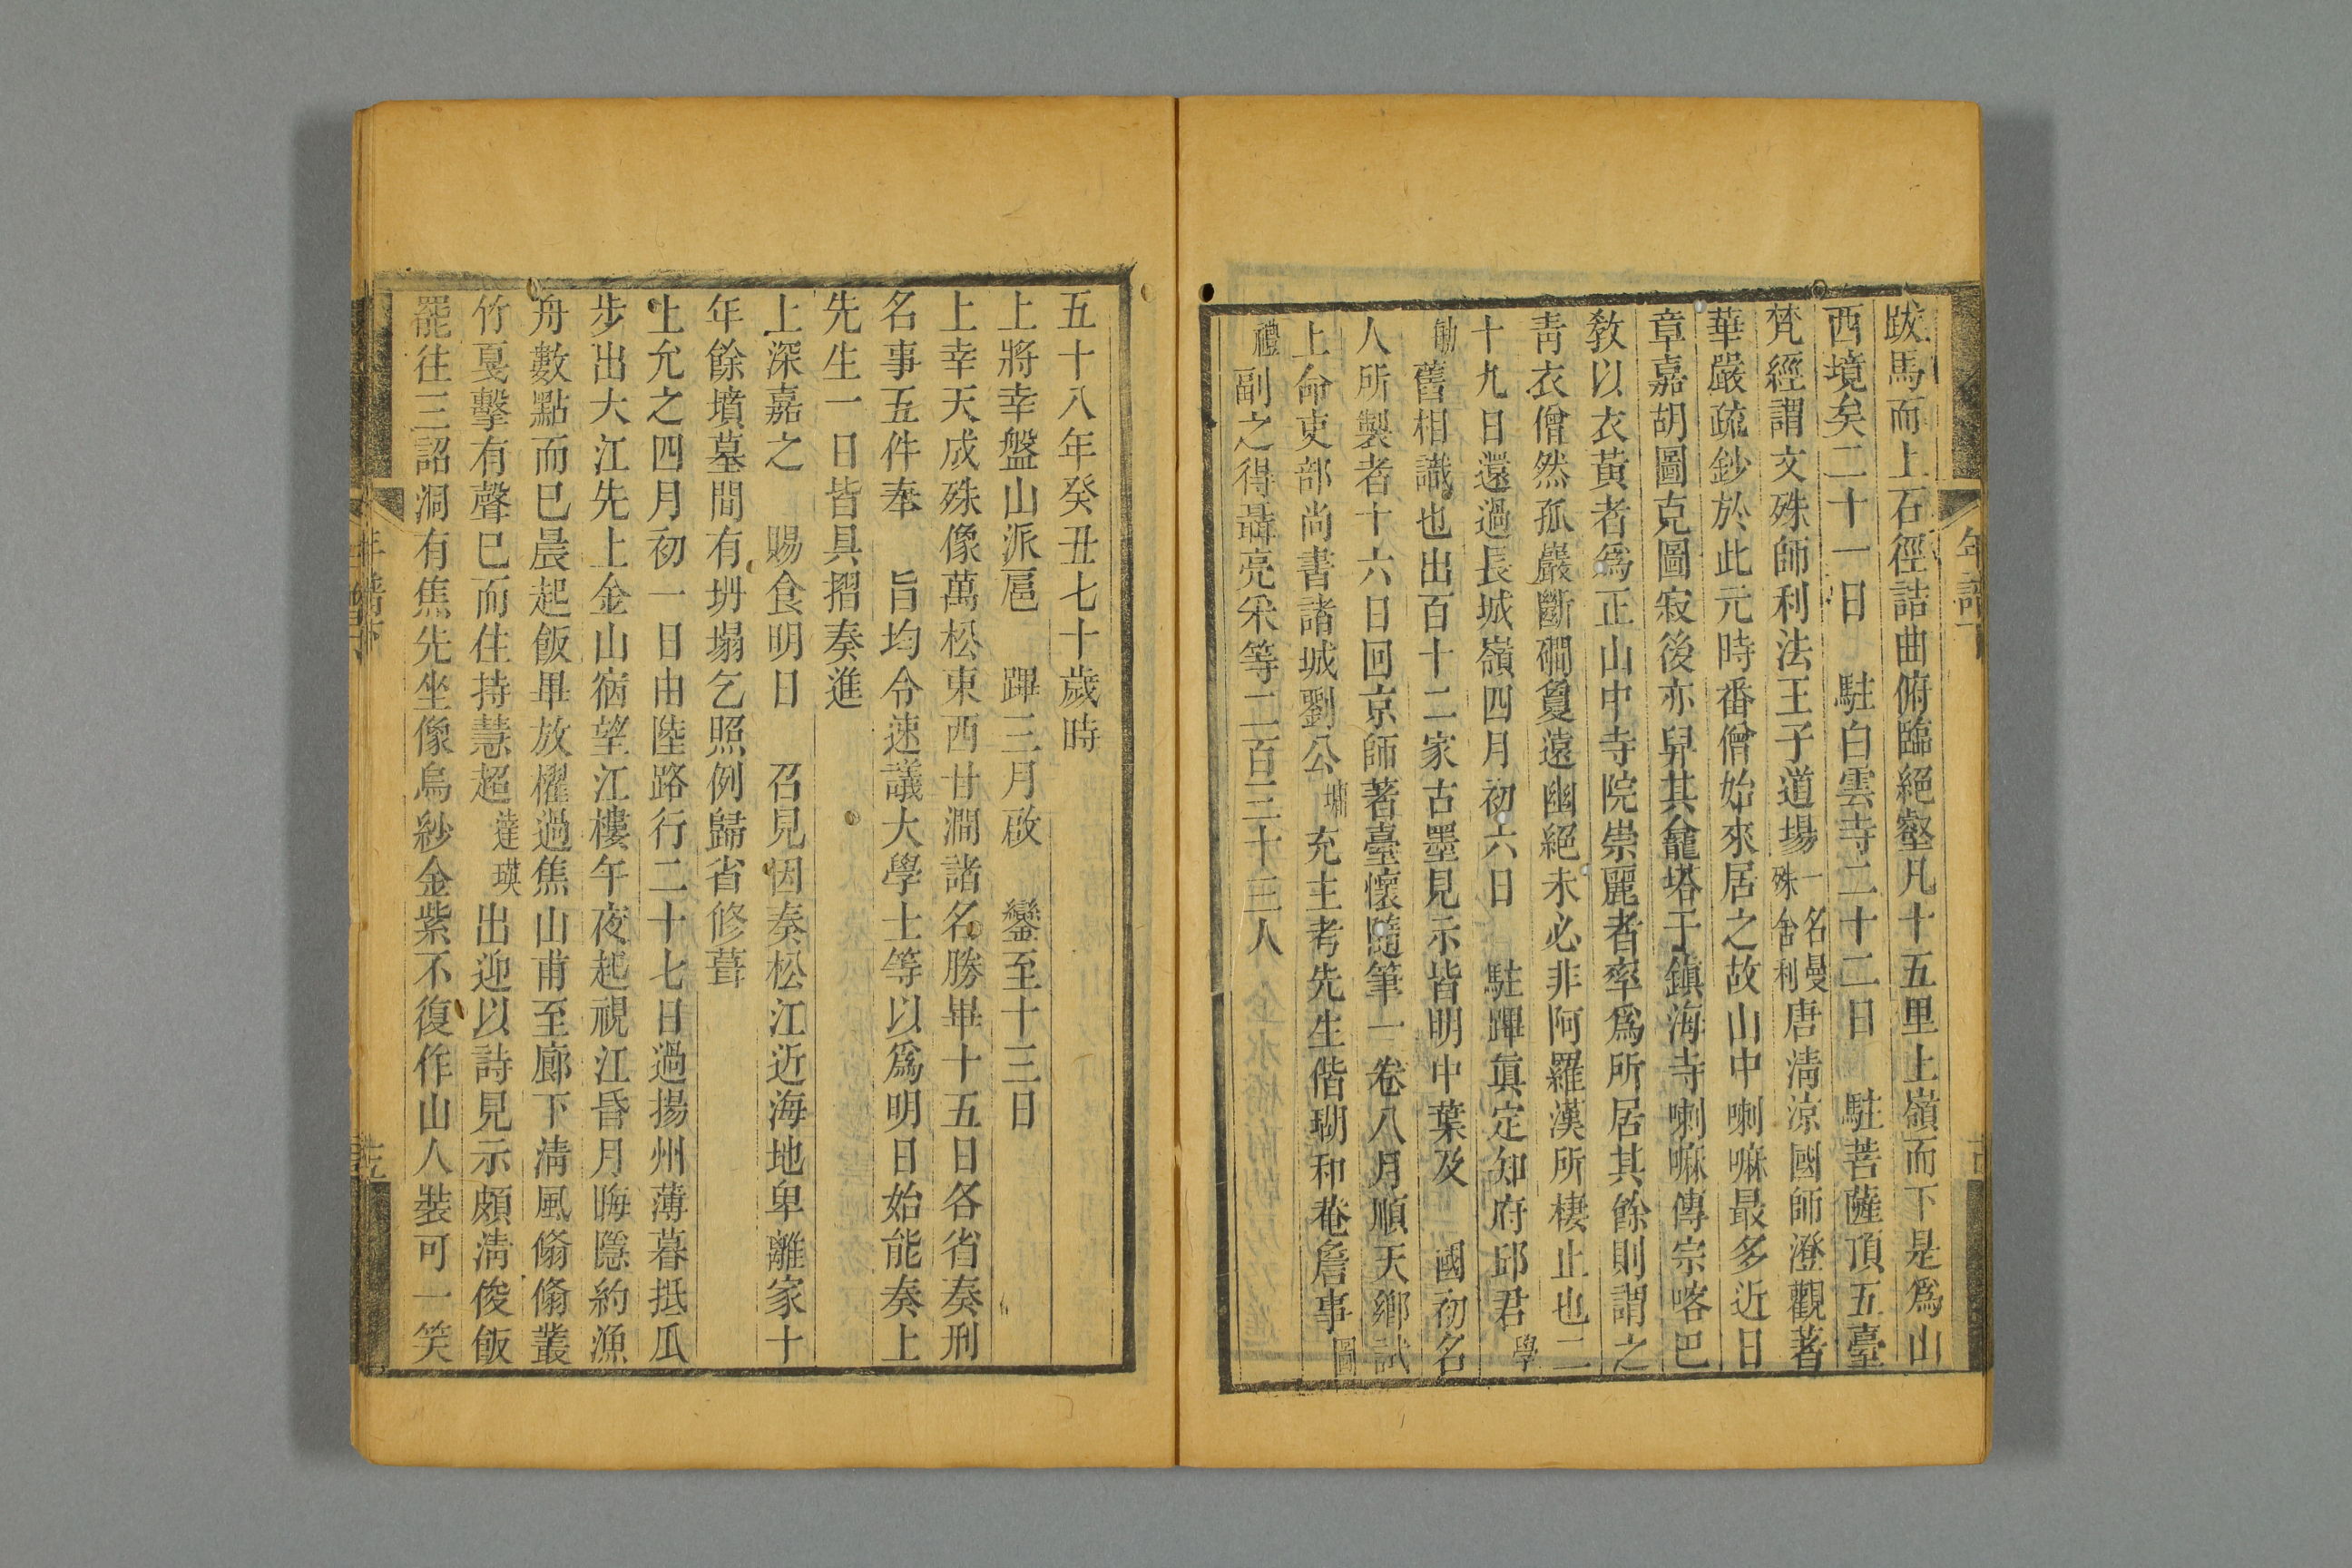 跋馬而上石徑詰曲俯臨絕壑凡十五里上嶺而下是爲山
西境矣二十一日　駐白雲寺二十二日　駐菩薩頂五臺
梵經謂文殊師利法王子道場一名曼殊舍利唐淸涼國師澄觀著
華嚴疏鈔於此元時番僧始來居之故山中喇嘛最多近日
章嘉胡圖克圖寂後亦舁其龕塔于鎮海寺喇嘛傳宗喀巴
敎以衣黃者爲正山中寺院崇麗者率爲所居其餘則謂之
靑衣僧然孤巖斷磵敻遠幽絕未必非阿羅漢所棲止也二
十九日還過長城嶺四月初六日　駐蹕眞定知府邱君學
勄舊相識也出百十二家古墨見示皆明中葉及　國初名
人所製者十六日回京師著臺懷隨筆一卷八月順天鄕試
上命吏部尙書諸城劉公墉充主考先生偕瑚和菴詹事圖
禮副之得聶亮采等二百三十三人
年譜下
五十八年癸丑七十歲時
上將幸盤山派扈　蹕三月啟　鑾至十三日
上幸天成殊像萬松東西甘澗諸名勝畢十五日各省奏刑
名事五件奉　旨均令速議大學士等以爲明日始能奏上
先生一日皆具摺奏進
上深嘉之　賜食明日　召見因奏松江近海地卑離家十
年餘墳墓間有坍塌乞照例歸省修葺
上允之四月初一日由陸路行二十七日過揚州薄暮抵瓜
步出大江先上金山宿望江樓午夜起視江昏月晦隱約漁
舟數點而已晨起飯畢放櫂過焦山甫至廊下淸風翛翛叢
竹戛擊有聲已而住持慧超達瑛出迎以詩見示頗淸俊飯
罷往三詔洞有焦先坐像烏紗金紫不復作山人裝可一笑
年譜下